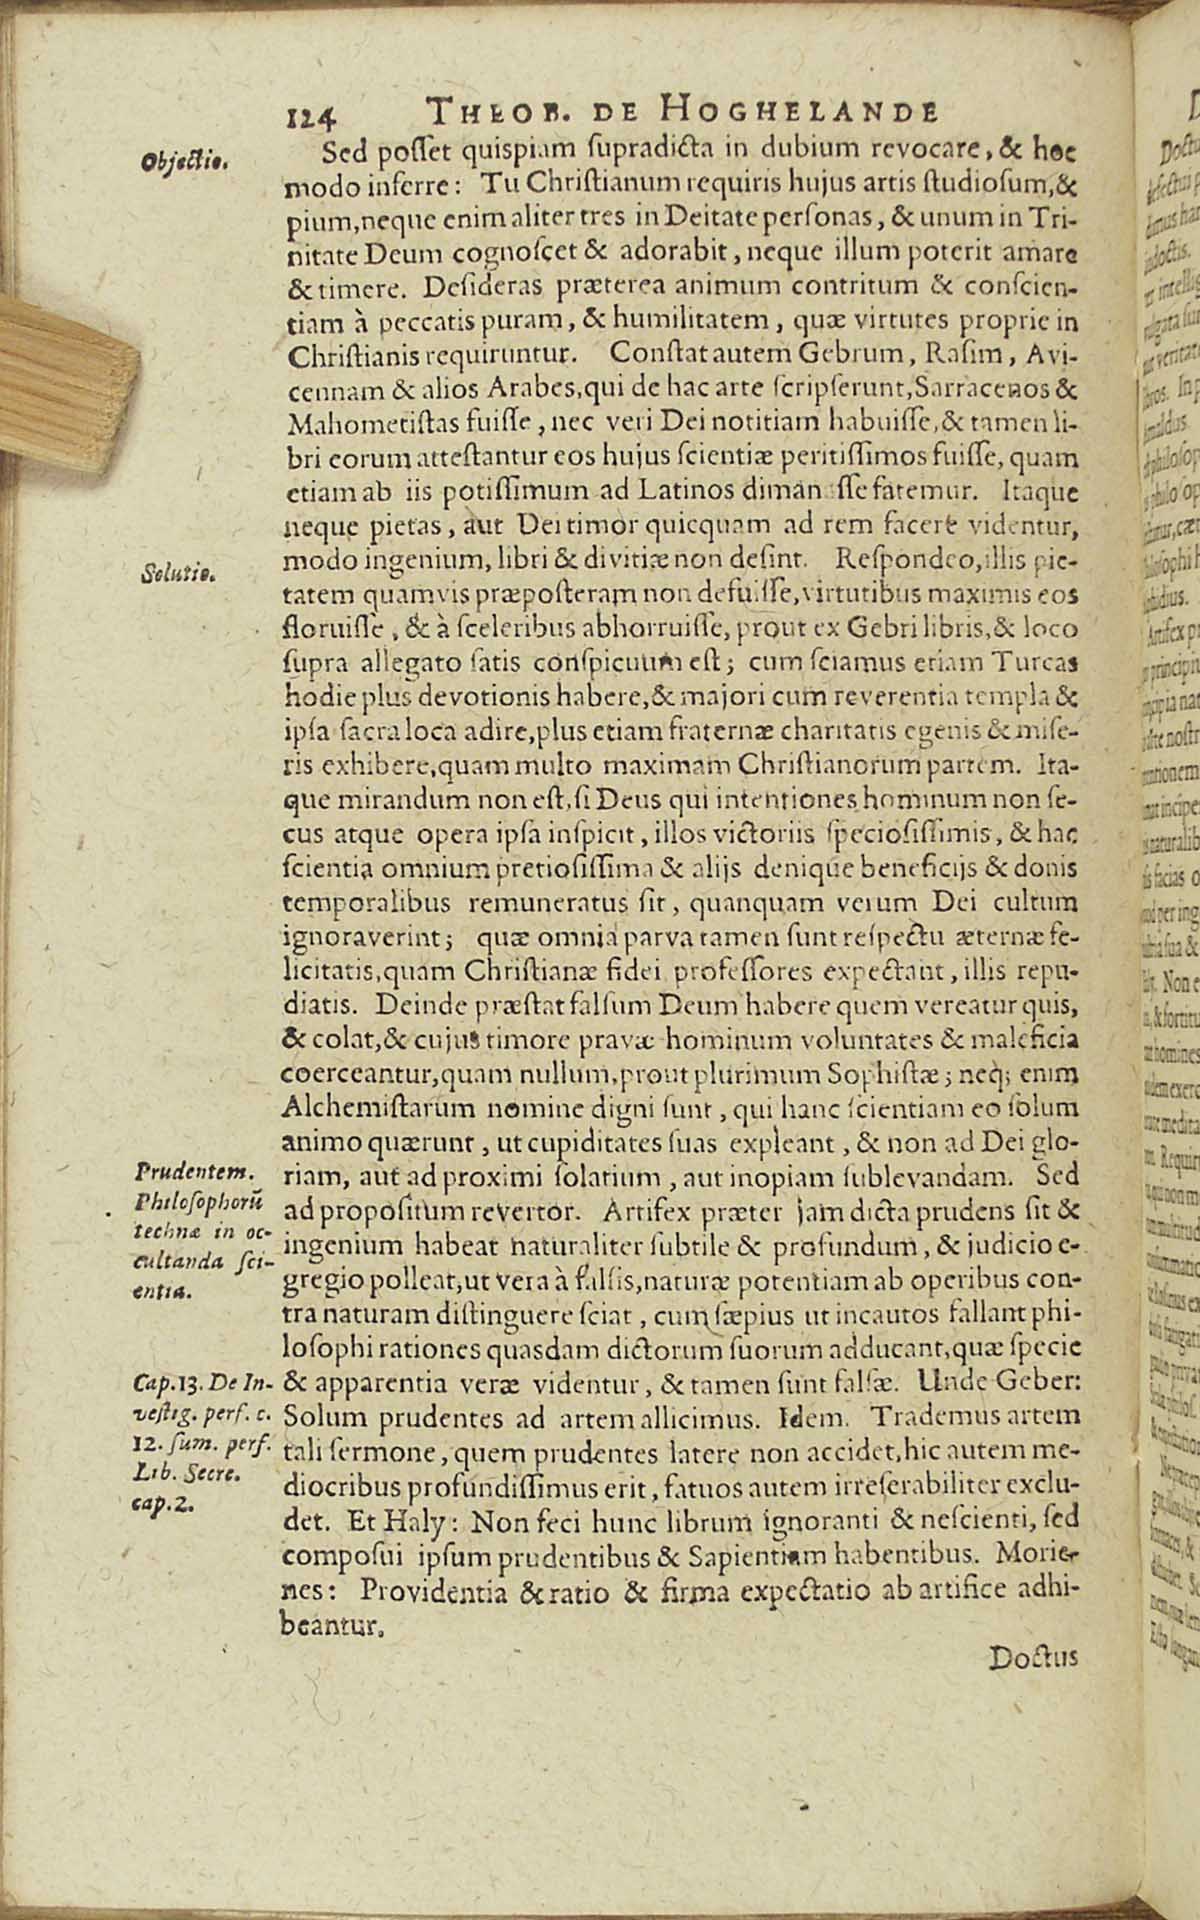 124 THEOB. DE HOGHELANDE
Objectio.
Sed posset quispiam supradicta in dubium revocare, & hoc
modo inferre: Tu Christianum requiris hujus artis studiosum, &
pium, neque enim aliter tres in Deitate personas, & unum in Tri-
nitate Deum cognoscet & adorabit, neque illum poterit amare
& timere. Desideras præterea animum contritum & conscien-
tiam à peccatis puram, & humilitatem, quæ virtutes proprie in
Christianis requiruntur. Constat autem Gebrum, Rasim, Avi-
cennam & alios Arabes, qui de hac arte scripserunt, Sarracenos &
Mahometistas fuisse, nec veri Dei notitiam habuisse, & tamen li-
bri eorum attestantur eos hujus scientiæ peritissimos fuisse, quam
etiam ab iis potissimum ad Latinos dimanasse fatemur. Itaque
neque pietas, aut Dei timor quicquam ad rem facere videntur,
Solutio.
modo ingenium, libri & divitiæ non desint. Respondeo, illis pie-
tatem quamvis præposteram non defuisse, virtutibus maximis eos
floruisse, & à sceleribus abhorruisse, prout ex Gebri libris, & loco
supra allegato satis conspicuum est; cum sciamus etiam Turcas
hodie plus devotionis habere, & majori cum reverentia templa &
ipsa sacra loca adire, plus etiam fraternæ charitatis egenis & mise-
ris exhibere, quam multo maximam Christianorum partem. Ita-
que mirandum non est, si Deus qui intentiones hominum non se-
cus atque opera ipsa inspicit, illos victoriis speciosissimis, & hac
scientia omnium pretiosissima & alijs denique beneficijs & donis
temporalibus remuneratus sit, quanquam verum Dei cultum
ignoraverint; quæ omnia parva tamen sunt respectu æternæ fe-
licitatis, quam Christianæ fidei professores expectant, illis repu-
diatis. Deinde præstat falsum Deum habere quem vereatur quis,
& colat, & cujus timore pravæ hominum voluntates & maleficia
coerceantur, quam nullum, prout plurimum Sophistæ; neq; enim
Alchemistarum nomine digni sunt, qui hanc scientiam eo solum
animo quærunt, ut cupiditates suas expleant, & non ad Dei glo-
riam, aut ad proximi solatium, aut inopiam sublevandam. Sed
ad propositum revertor. Artifex præter jam dicta prudens sit &
ingenium habeat naturaliter subtile & profundum, & judicio e-
gregio polleat, ut vera à falsis, naturæ potentiam ab operibus con-
tra naturam distinguere sciat, cum sæpius ut incautos fallant phi-
losophi rationes quasdam dictorum suorum adducant, quæ specie
& apparentia veræ videntur, & tamen sunt falsæ. Unde Geber:
Solum prudentes ad artem allicimus. Idem. Trademus artem
tali sermone, quem prudentes latere non accidet, hic autem me-
diocribus profundissimus erit, fatuos autem irreserabiliter exclu-
det. Et Haly: Non feci hunc librum ignoranti & nescienti, sed
composui ipsum prudentibus & Sapientiam habentibus. Morie-
nes: Providentia & ratio & firma expectatio ab artifice adhi-
beantur.
Prudentem.
Philosophorū
technæ in oc-
cultanda sci-
entia.
Cap. 13. De In-
vestig. perf. c.
12. sum. perf.
Lib. Secre.
cap. 2.
Doctus